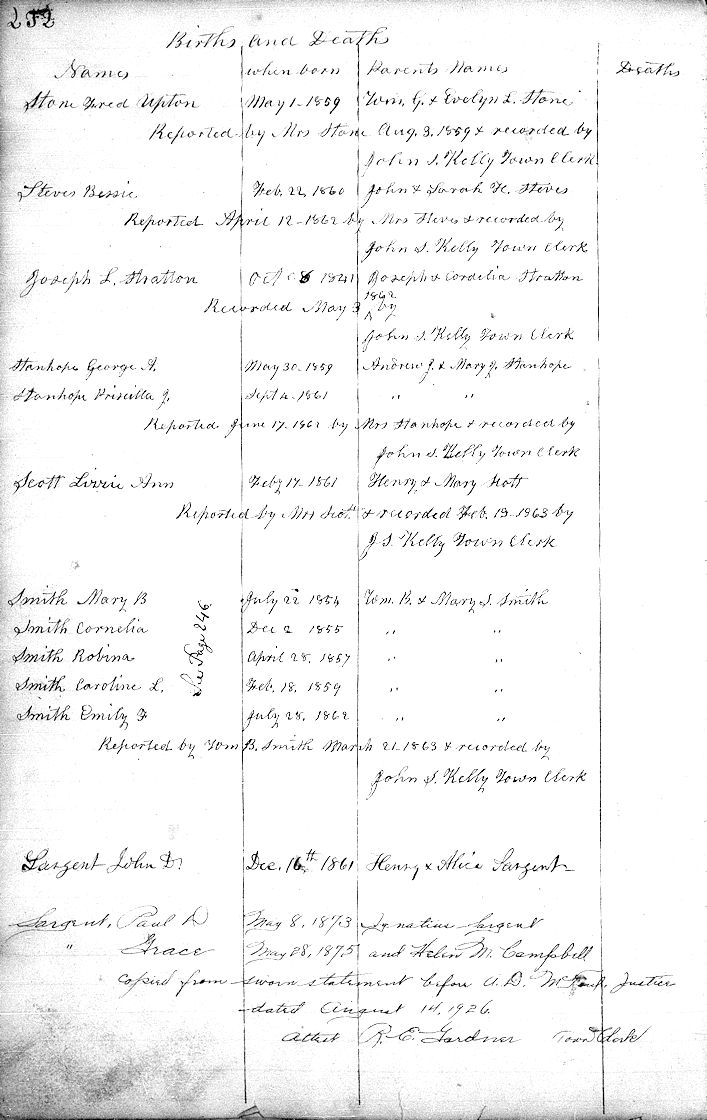 252
Births and Death
Names when born Parents Names Deaths
Stone Fred Upton May 1-1859 Wm. G. & Evelyn L. Stone
Reported by Mrs Stone Aug. 3, 1859 & recorded by
John S. Kelly Town Clerk
Steves Bessie Feb. 22, 1860 John & Sarah H. Steves
Reported April 12-1862 by Mrs Steves & recorded by
John S. Kelly Town Clerk
Joseph L. Stratton Oct 8 1841 Joseph & Cordelia Stratton
Recorded May 3 1862 by
John S. Kelly Town Clerk
Stanhope George A. May 30-1859 Andrew J. & Mary J. Stanhope
Stanhope Priscilla J. Sept 4-1861 " "
Reported June 17-1862 by Mrs Stanhope & recorded by
John S. Kelly Town Clerk
Scott Lizzie Ann Feby 17-1861 Henry & Mary Scott
Reported by Mrs Scott & recorded Feb. 13-1863 by
J. S. Kelly Town Clerk
Smith Mary B July 22 1854 Wm. B. & Mary S. Smith
Smith Cornelia Dec 2 1855 " "
Smith Robina April 28, 1857 " "
Smith Caroline L. Feb. 18, 1859 " "
Smith Emily F July 28, 1862 " "
See Page 246
Reported by Wm B. Smith March 21-1863 & recorded by
John S. Kelly Town Clerk
Sargent John D. Dec. 16th 1861 Henry & Alice Sargent
Sargent, Paul D May 8, 1873 Ignatius Sargent
" Grace May 28, 1875 and Helen M. Campbell
copied from sworn statement before A. D. Justice
dated August 14, 1926.
Attest R. E. Gardner Town Clerk